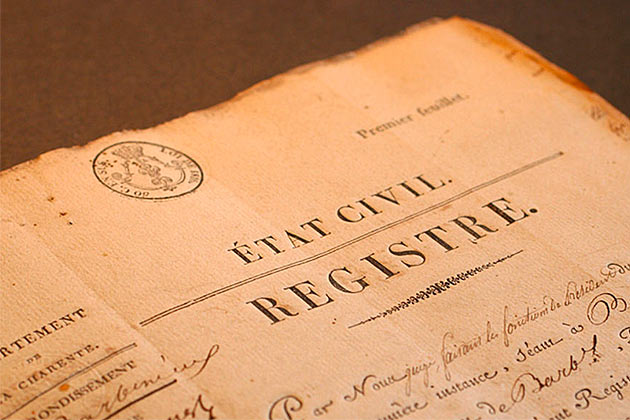 Premier feuillet.
ÉTAT CIVIL.
REGISTRE.
RTEMENT
DE
A CHARENTE.
ONDISSEMENT
Barbezieux
Par Nous juge, faisant les fonctions de Président du
instance, séant à B
de Barb
Regis